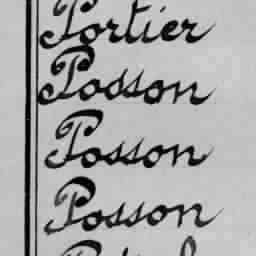 Portier
Posson
Posson
Posson